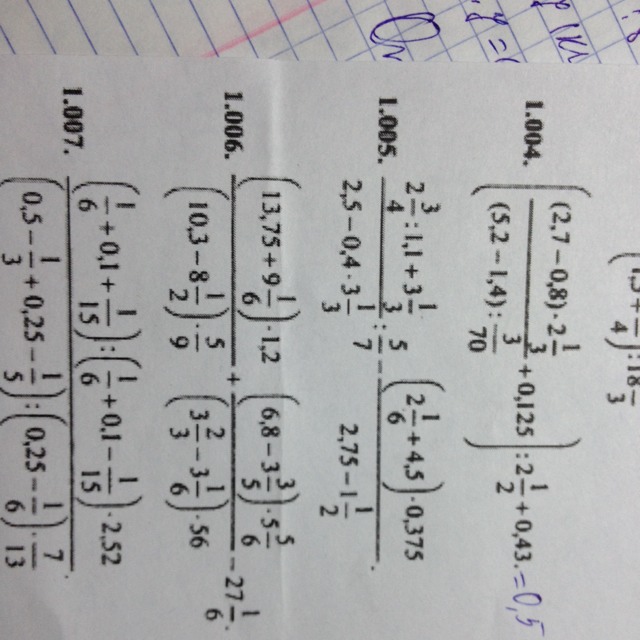 1.004. ((2,7 − 0,8) · 2 1/3 / (5,2 − 1,4) : 3/70 + 0,125) : 2 1/2 + 0,43. =0,5
1.005. (2 3/4 : 1,1 + 3 1/3) / (2,5 − 0,4 · 3 1/3) : 5/7 − ((2 1/6 + 4,5) · 0,375) / (2,75 − 1 1/2).
1.006. ((13,75 + 9 1/6) · 1,2) / ((10,3 − 8 1/2) · 5/9) + ((6,8 − 3 3/5) · 5 5/6) / ((3 2/3 − 3 1/6) · 56) − 27 1/6.
1.007. ((1/6 + 0,1 + 1/15) : (1/6 + 0,1 − 1/15) · 2,52) / ((0,5 − 1/3 + 0,25 − 1/5) : (0,25 − 1/6) · 7/13).